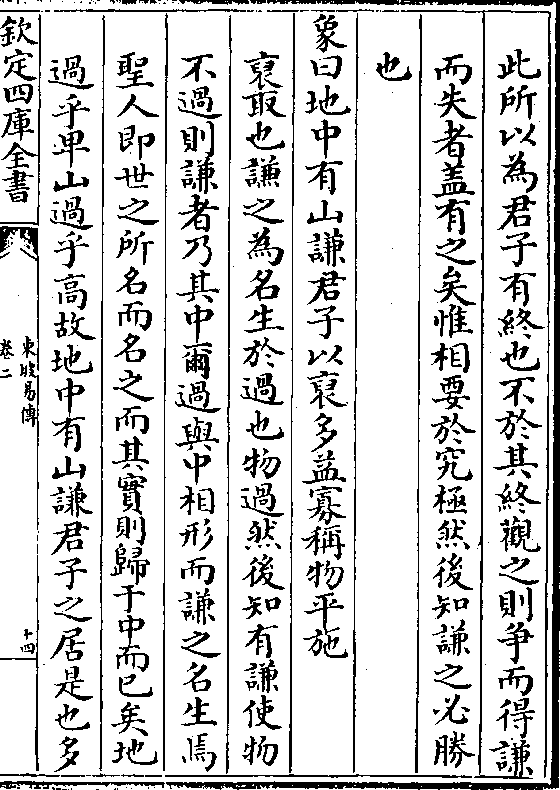 此所以為君子有終也不於其終觀之則爭而得謙
而失者蓋有之矣惟相要於究極然後知謙之必勝
也
象曰地中有山謙君子以裒多益寡稱物平施
裒取也謙之為名生於過也物過然後知有謙使物
不過則謙者乃其中爾過與中相形而謙之名生焉
聖人即世之所名而名之而其實則歸于中而已矣地
過乎卑山過乎高故地中有山謙君子之居是也多
欽定四庫全書
東坡易傳
卷二
十四